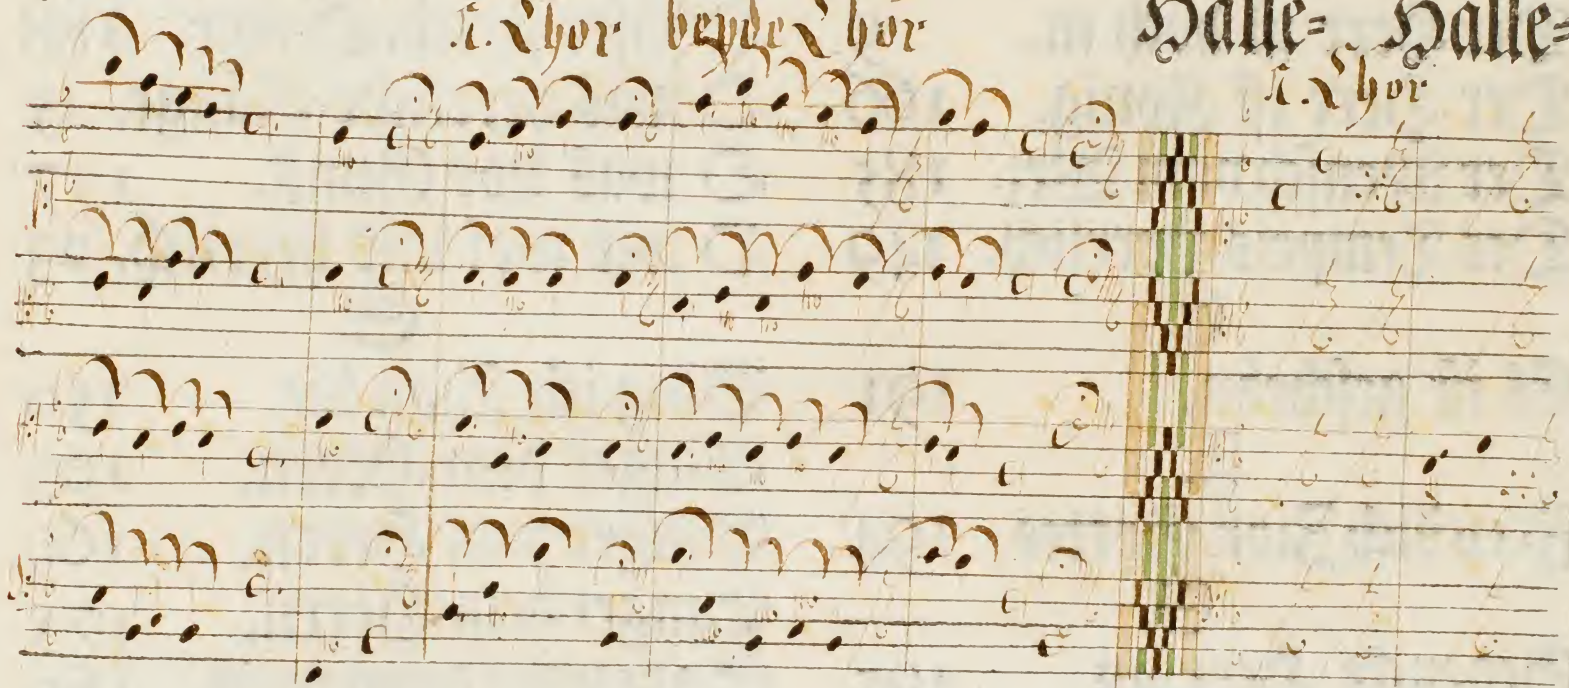 Chor beyde Chor
Halle= Halle=
Chor